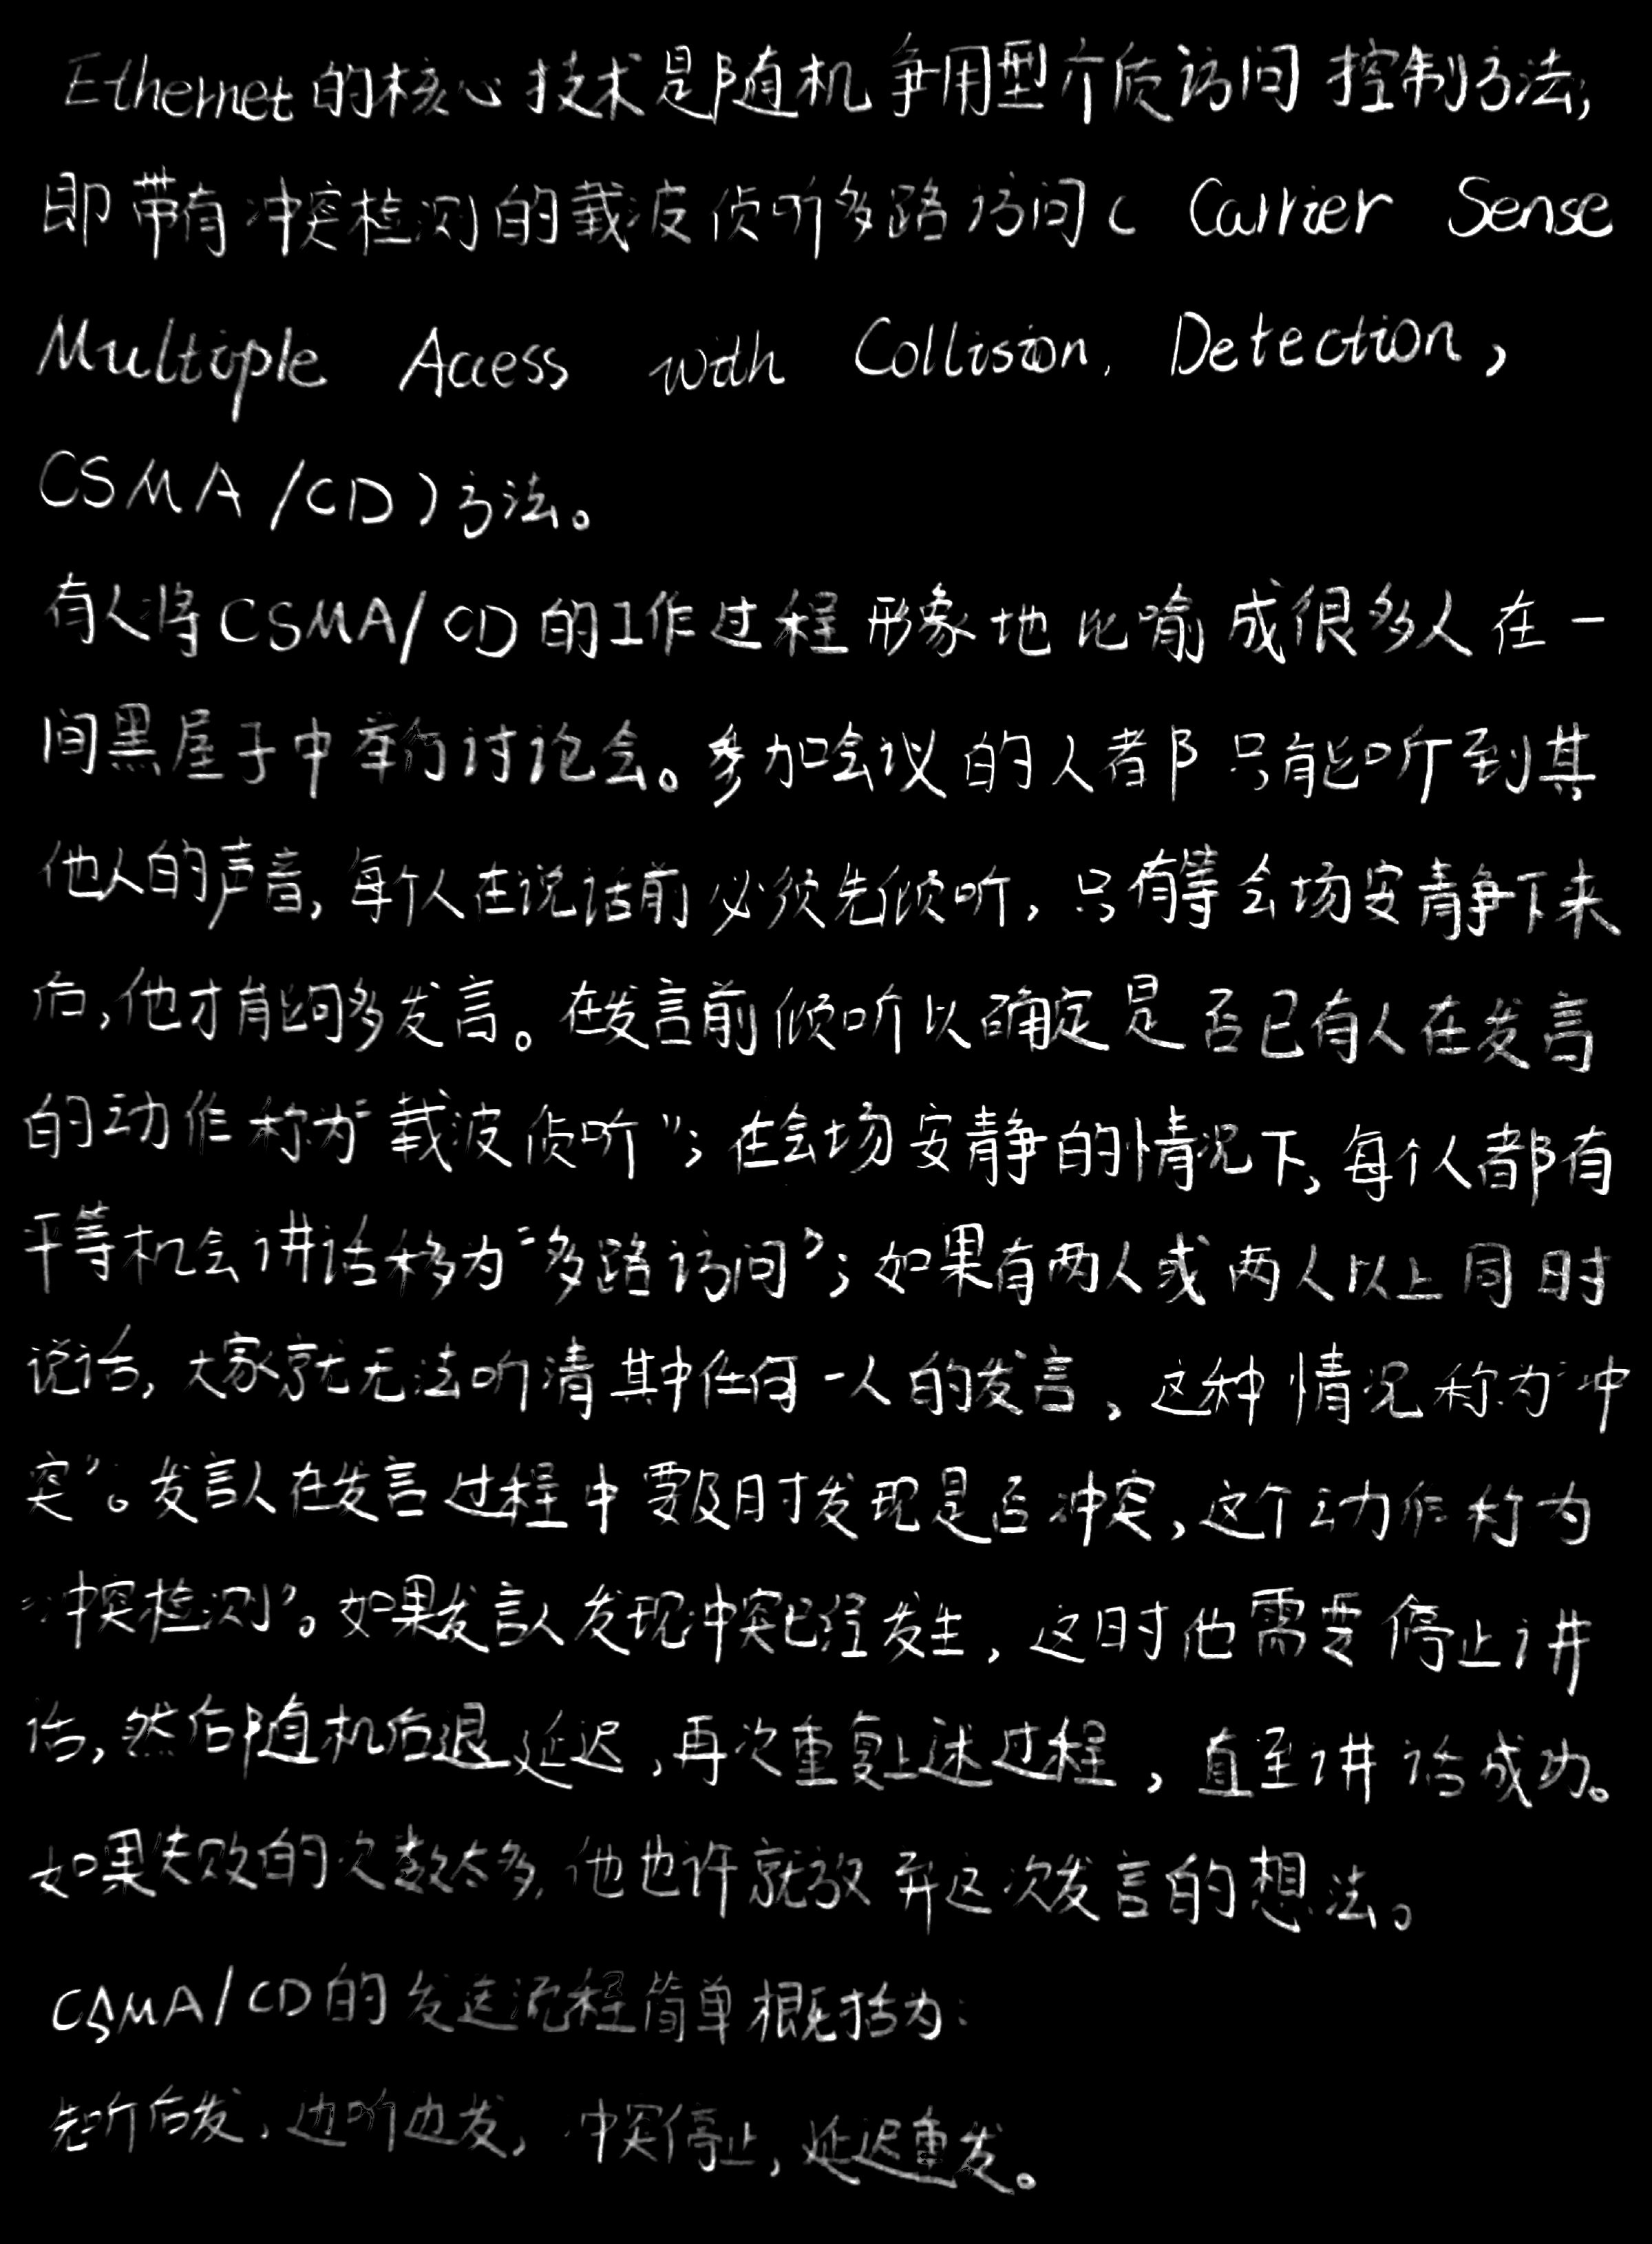 Ethernet的核心技术是随机争用型介质访问控制方法,
即带有冲突检测的载波侦听多路访问( Carrier Sense
Multiple Access with Collision. Detection,
CSMA/CD)方法。
有人将CSMA/CD的工作过程形象地比喻成很多人在一
间黑屋子中举行讨论会。参加会议的人都只能听到其
他人的声音,每个人在说话前必须先倾听,只有等会场安静下来
后,他才能够发言。在发言前倾听以确定是否已有人在发言
的动作称为“载波侦听”;在会场安静的情况下,每个人都有
平等机会讲话称为“多路访问”;如果有两人或两人以上同时
说话,大家就无法听清其中任何一人的发言,这种情况称为“冲
突”。发言人在发言过程中要及时发现是否冲突,这个动作称为
“冲突检测”。如果发言人发现冲突已经发生,这时他需要停止讲
话,然后随机后退延迟,再次重复上述过程,直至讲话成功。
如果失败的次数太多,他也许就放弃这次发言的想法。
CSMA/CD的发送流程简单概括为:
先听后发,边听边发,冲突停止,延迟重发。